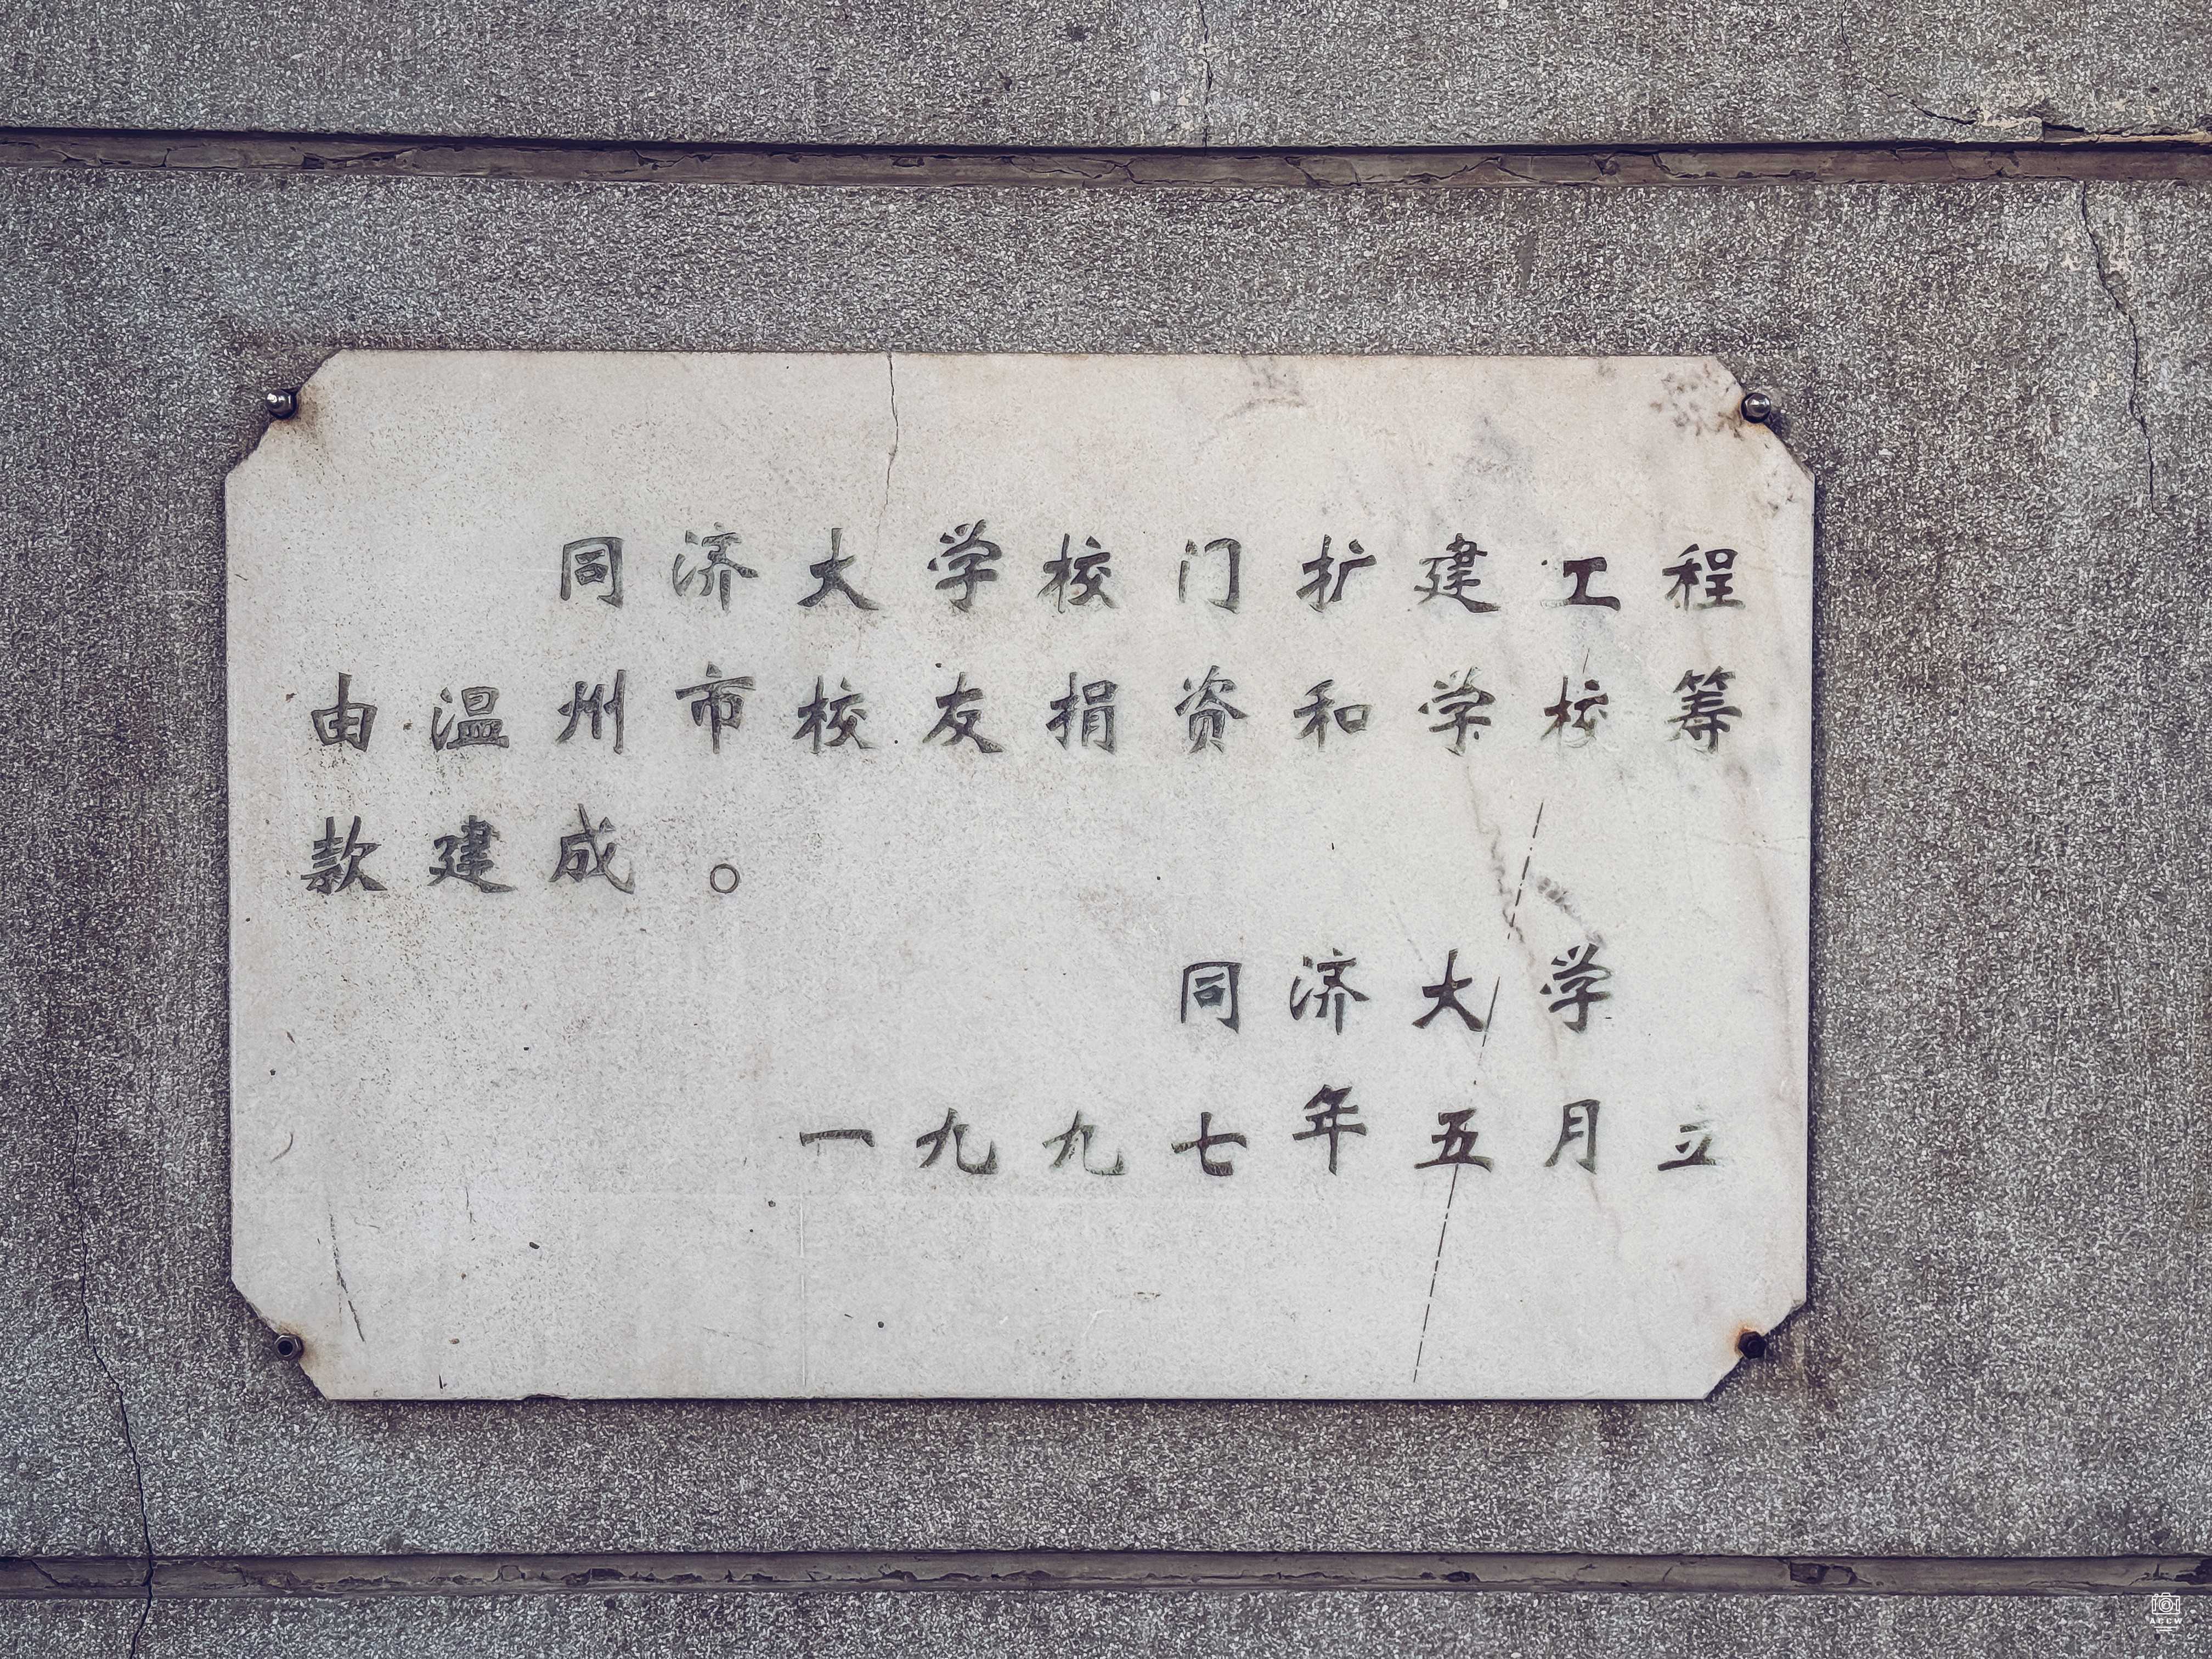 同济大学校门扩建工程
由温州市校友捐资和学校筹
款建成。
同济大学
一九九七年五月立
ACCW